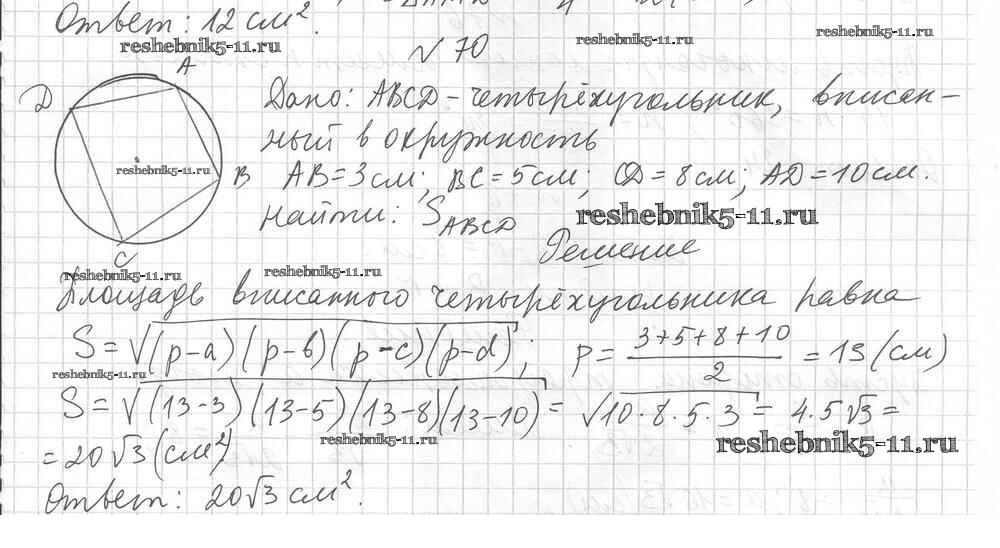 Ответ: 12 см².
reshebnik5-11.ru
reshebnik5-11.ru
reshebnik5-11.ru
№ 70
A
D
B
C
reshebnik5-11.ru
Дано: ABCD - четырёхугольник, вписан-
ный в окружность
AB = 3 см; BC = 5 см; CD = 8 см; AD = 10 см.
Найти: S_ABCD
reshebnik5-11.ru
Решение
reshebnik5-11.ru
reshebnik5-11.ru
Площадь вписанного четырёхугольника равна
S = √(p-a)(p-b)(p-c)(p-d); p = (3+5+8+10)/2 = 13 (см)
reshebnik5-11.ru
S = √(13-3)(13-5)(13-8)(13-10) = √10·8·5·3 = 4·5√3 =
reshebnik5-11.ru
reshebnik5-11.ru
= 20√3 (см²)
Ответ: 20√3 см².